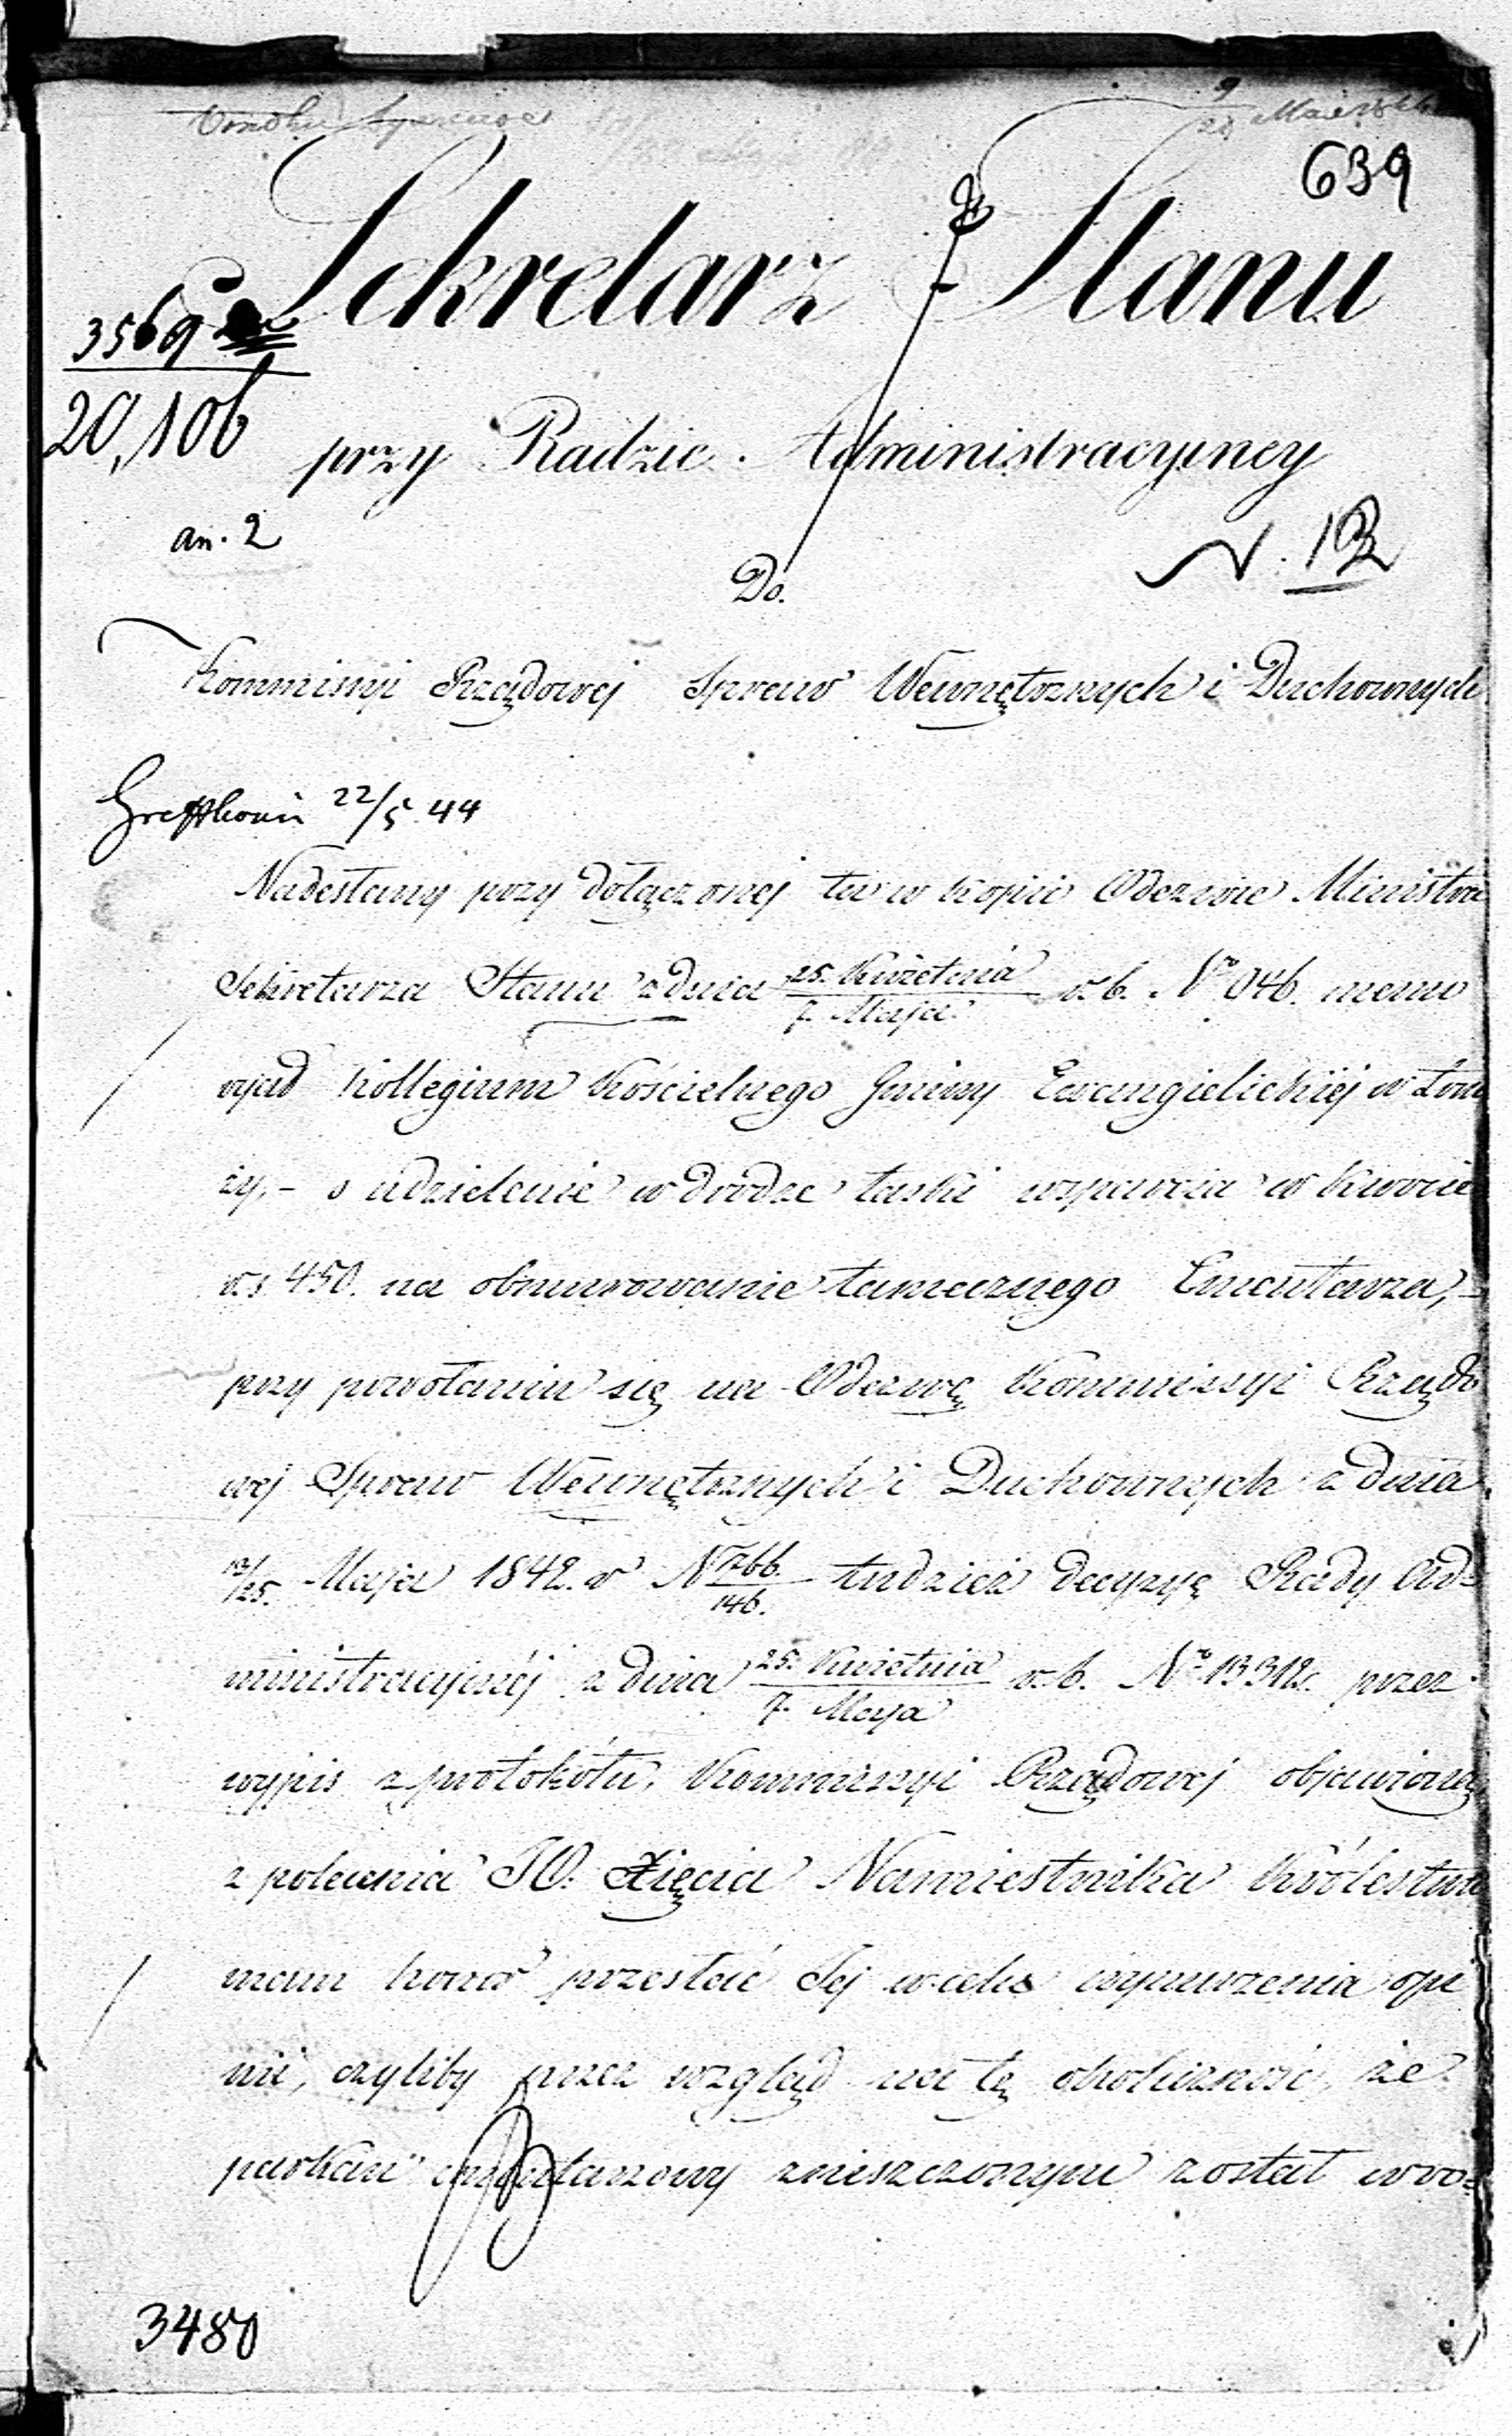 9/21 Maja
639
Sekretarz Stanu
3569
20,106
przy Radzie Administracyjney
an. 2
N. 12
Do
Kommissyi Rządowej Spraw Wewnętrznych i Duchownych
22/5 44
Nadesłany przy dołączonej tu w kopii Odezwie Ministra
Sekretarza Stanu z dnia 25. Kwietnia / 7. Maja r.b. No 946. memo
ryał Kollegium Kościelnego Gminy Ewangielickiéj w Łom
ży, – o udzielenie w drodze łaski wsparcia w kwocie
r.s. 450. na obmurowanie tamecznego Cmentarza, –
przy powołaniu się na Odezwę Kommissyi Rządo
wej Spraw Wewnętrznych i Duchownych z dnia
13/25. Maja 1842. r N 766./146. tudzież decyzyę Rady Ad=
ministracyjnéj z dnia 25. Kwietnia / 7. Maja r.b. No 13312. przez
wypis z protokółu, Kommissyi Rządowej objawioną
z polecenia JO. Xięcia Namiestnika Królestwa
mam honor przesłać Jej w celu wynurzenia opi
nii, czyliby przez wzgląd na tę okoliczność, że
parkan cmentarzowy zniszczonym został w ro=
3480